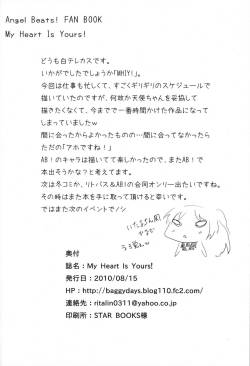 Angel Beats! FAN BOOK
My Heart Is Yours!
どうも白テレカスです。
いかがでしたでしょうか「MHIY!」。
今回は仕事も忙しくて、すごくギリギリのスケジュールで
描いていたのですが、何故か天使ちゃんを妥協して
描きたくなくて、今までで一番時間かけた作品になって
しまっていましたｗ
間に合ったからよかったものの…間に合ってなかったら
ただの「アホですね！」
AB！のキャラは描いてて楽しかったので、またAB！で
本出そうかな？と考えてます。
次は冬コミか、リトバス&AB！の合同オンリー出たいですね。
その時はまた本を手に取って頂けると幸いです。
ではまた次のイベントでノシ
奥付
誌名：My Heart Is Yours!
発行日：2010/08/15
HP：http://baggydays.blog110.fc2.com/
連絡先：ritalin0311@yahoo.co.jp
印刷所：STAR BOOKS様